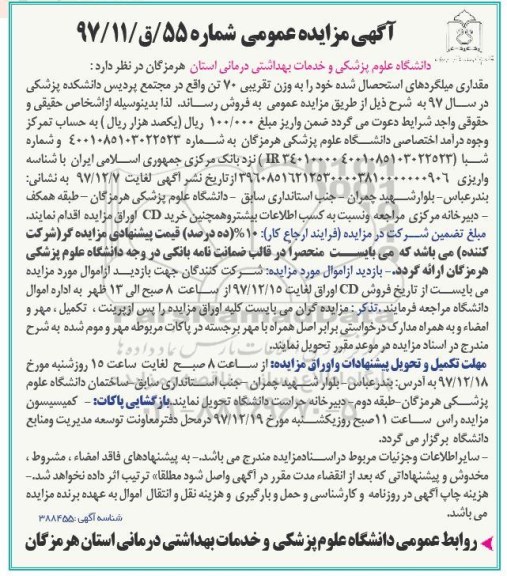 آگهی مزایده عمومی شماره ۵۵/ق/۹۷/۱۱
دانشگاه علوم پزشکی و خدمات بهداشتی درمانی استان هرمزگان در نظر دارد :
مقداری میلگردهای استحصال شده خود را به وزن تقریبی ۷۰ تن واقع در مجتمع پردیس دانشکده پزشکی
در سال ۹۷ به شرح ذیل از طریق مزایده عمومی به فروش رساند. لذا بدینوسیله ازاشخاص حقیقی و
حقوقی واجد شرایط دعوت می گردد ضمن واریز مبلغ ۱۰۰/۰۰۰ ریال (یکصد هزار ریال ) به حساب تمرکز
وجوه درآمد اختصاصی دانشگاه علوم پزشکی هرمزگان به شماره ۴۰۰۱۰۸۵۱۰۳۰۲۲۵۲۳ و شماره
شبا (IR ۳۴۰۱۰۰۰۰ ۴۰۰۱۰۸۵۱۰۳۰۲۲۵۲۳) نزد بانک مرکزی جمهوری اسلامی ایران با شناسه
واریزی ۳۹۶۰۸۵۱۶۲۱۲۵۳۰۰۰۰۳۸۱۰۰۰۰۰۰۰۹۰۶ از تاریخ نشر آگهی لغایت ۹۷/۱۲/۷ به نشانی:
بندرعباس- بلوارشهید چمران - جنب استانداری سابق - دانشگاه علوم پزشکی هرمزگان - طبقه همکف
- دبیرخانه مرکزی مراجعه ونسبت به کسب اطلاعات بیشتروهمچنین خرید CD اوراق مزایده اقدام نمایند.
مبلغ تضمین شرکت در مزایده (فرایند ارجاع کار): ۱۰%(ده درصد) قیمت پیشنهادی مزایده گر(شرکت
کننده) می باشد که می بایست منحصرا در قالب ضمانت نامه بانکی در وجه دانشگاه علوم پزشکی
هرمزگان ارائه گردد.- بازدید ازاموال مورد مزایده: شرکت کنندگان جهت بازدید ازاموال مورد مزایده
می بایست از تاریخ فروش CD اوراق لغایت ۹۷/۱۲/۱۵ از ساعت ۸ صبح الی ۱۳ ظهر به اداره اموال
دانشگاه مراجعه فرمایند.تذکر : مزایده گران می بایست کلیه اوراق مزایده را پس ازپرینت ، تکمیل ، مهر و
امضاء و به همراه مدارک درخواستی برابر اصل همراه با مهر برجسته در پاکات مربوطه مهر و موم شده به شرح
مندرج در اسناد مزایده در موعد مقرر تحویل نمایند.
مهلت تکمیل و تحویل پیشنهادات واوراق مزایده: از ساعت ۸ صبح لغایت ساعت ۱۵ روزشنبه مورخ
۹۷/۱۲/۱۸ به آدرس: بندرعباس- بلوار شهید چمران -جنب استانداری سابق-ساختمان دانشگاه علوم
پزشکی هرمزگان-طبقه دوم- دبیرخانه حراست دانشگاه تحویل نمایند.بازگشایی پاکات: - کمیسیسون
مزایده راس ساعت ۱۱صبح روزیکشنبه مورخ ۹۷/۱۲/۱۹ درمحل دفترمعاونت توسعه مدیریت ومنابع
دانشگاه برگزار می گردد.
- سایراطلاعات وجزئیات مربوط دراسنادمزایده مندرج می باشد.- به پیشنهادهای فاقد امضاء ، مشروط ،
مخدوش و پیشنهاداتی که بعد از انقضاء مدت مقرر در آگهی واصل شود مطلقا» ترتیب اثر داده نخواهد شد.-
هزینه چاپ آگهی در روزنامه و کارشناسی و حمل و بارگیری و هزینه نقل و انتقال اموال به عهده برنده مزایده
می باشد.
شناسه آگهی :۳۸۸۴۵۵
روابط عمومی دانشگاه علوم پزشکی و خدمات بهداشتی درمانی استان هرمزگان